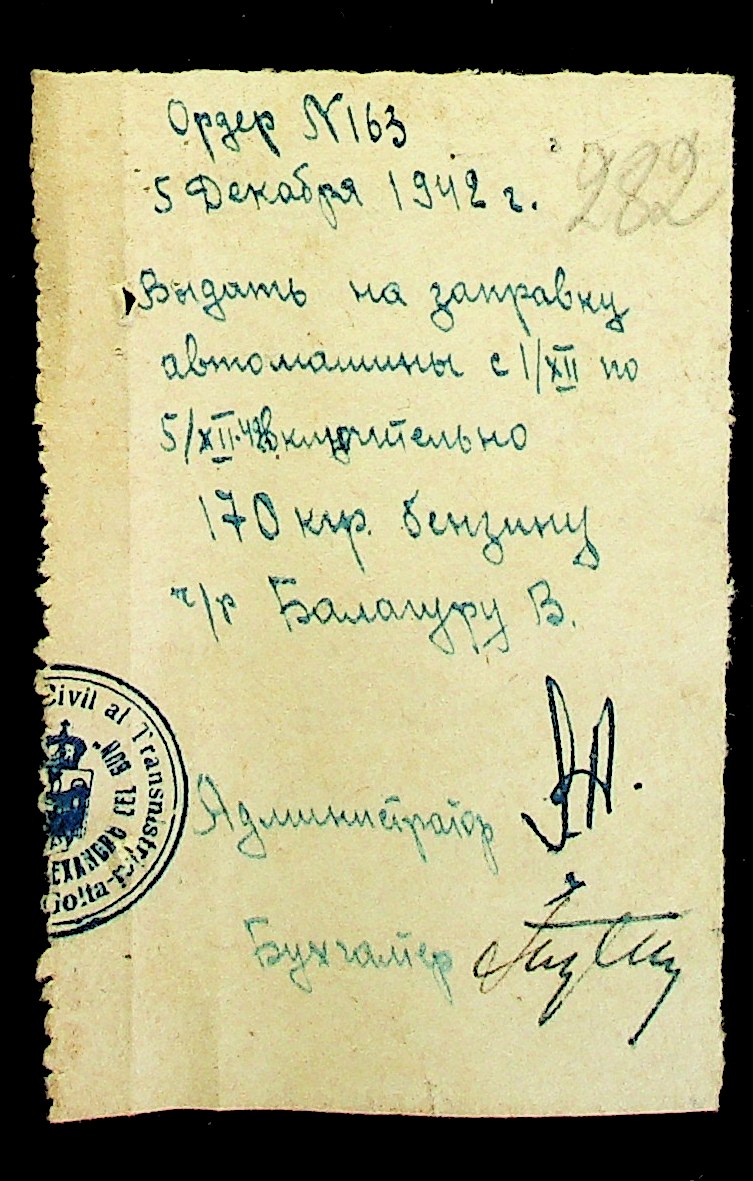 Ордер N163
282
5 Декабря 1942 г.
Выдать на заправку
автомашины с 1/XII по
5/XII-42 включительно
170 кгр. бензину
ч/р Балагуру В.
Civil al Transnistriei
"ALEXANDRU CEL BUN"
Golta
Администратор
Бухгалтер